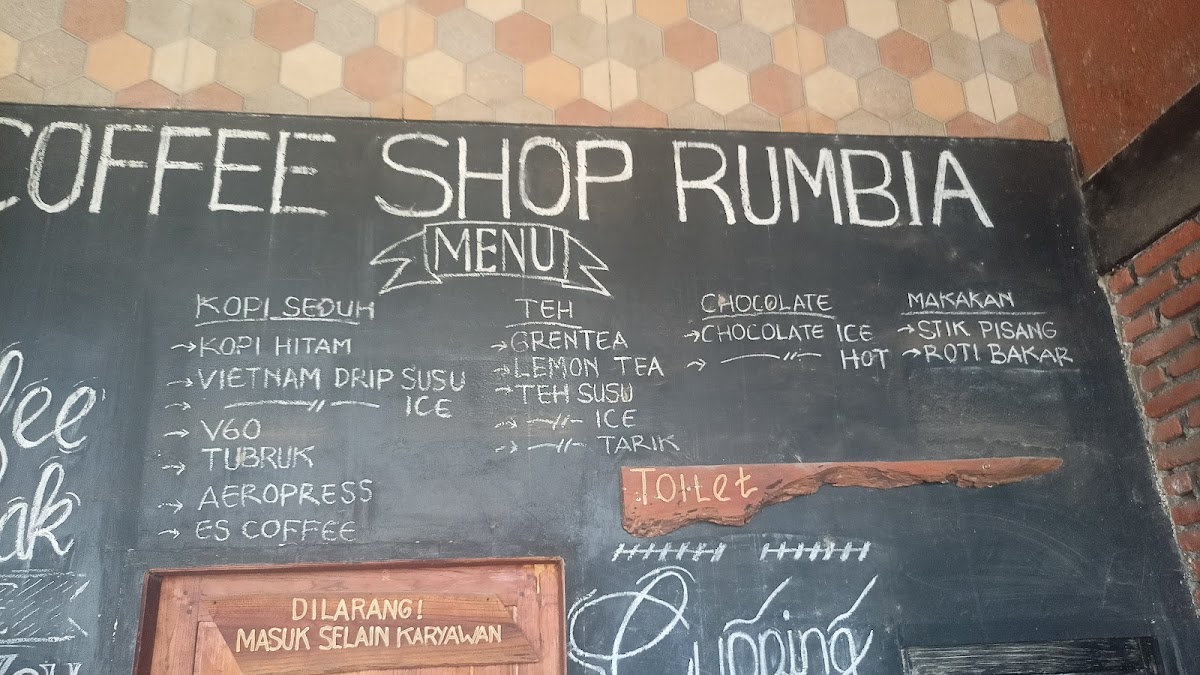 COFFEE SHOP RUMBIA
MENU
KOPI SEDUH
→KOPI HITAM
→VIETNAM DRIP SUSU
→ —//— ICE
→ V60
→ TUBRUK
→ AEROPRESS
→ ES COFFEE
TEH
→GRENTEA
→LEMON TEA
→TEH SUSU
→ —//— ICE
→ —//— TARIK
CHOCOLATE
→CHOCOLATE ICE
→ —//— HOT
MAKAKAN
→STIK PISANG
→ROTI BAKAR
TOILET
DILARANG!
MASUK SELAIN KARYAWAN
Cupping